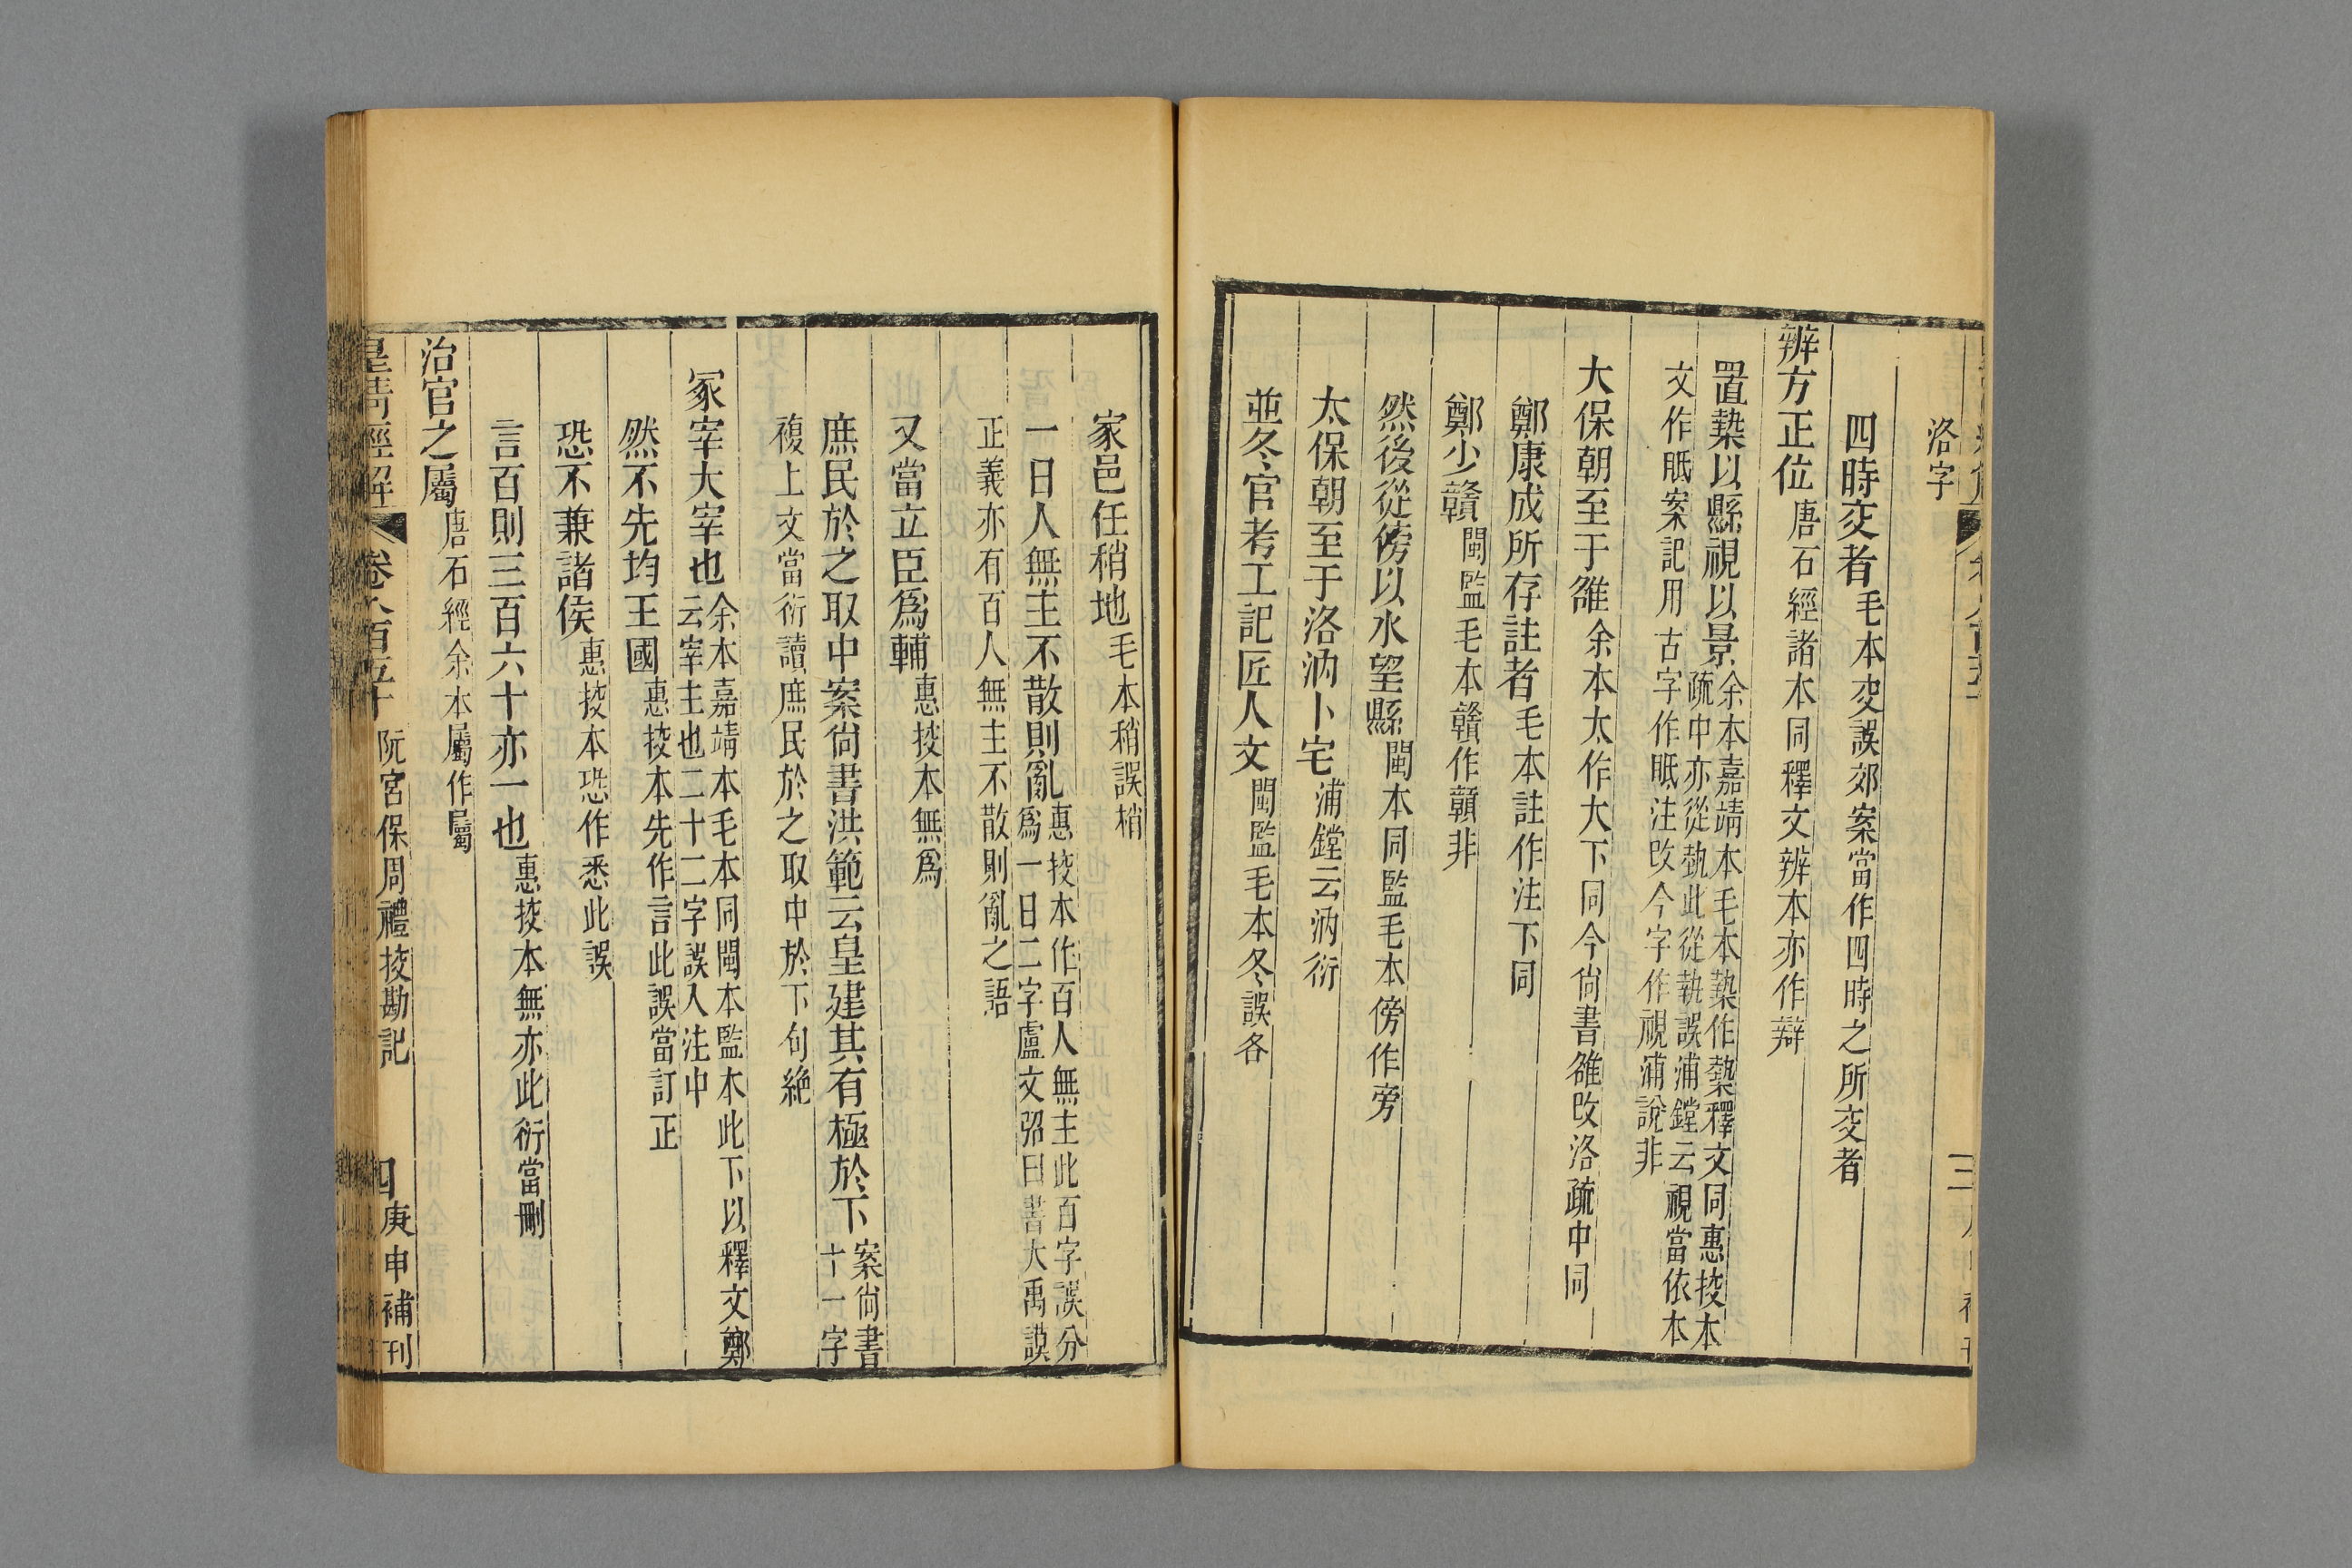 洛字
四時交者毛本交誤郊案當作四時之所交者
辨方正位唐石經諸本同釋文辨本亦作辯
置槷以縣視以景余本嘉靖本毛本槷作槷釋文同惠挍本
疏中亦從埶此從執誤浦鏜云視當依本
文作眡案記用古字作眡注改今字作視浦說非
大保朝至于雒余本太作大下同今尙書雒改洛疏中同
鄭康成所存註者毛本註作注下同
鄭少贛閩監毛本贛作贑非
然後從傍以水望縣閩本同監毛本傍作旁
太保朝至于洛汭卜宅浦鏜云汭衍
並冬官考工記匠人文閩監毛本冬誤各
家邑任稍地毛本稍誤梢
一日人無主不散則亂惠挍本作百人無主此百字誤分
爲一日二字盧文弨曰書大禹謨
正義亦有百人無主不散則亂之語
又當立臣爲輔惠挍本無爲
庶民於之取中案尙書洪範云皇建其有極於下案尙書
十一字
複上文當衍讀庶民於之取中於下句絶
冢宰大宰也余本嘉靖本毛本同閩本監本此下以釋文鄭
云宰主也二十二字誤入注中
然不先均王國惠挍本先作言此誤當訂正
恐不兼諸侯惠挍本恐作悉此誤
言百則三百六十亦一也惠挍本無亦此衍當刪
治官之屬唐石經余本屬作屬
皇清經解 卷八百五十 阮宮保周禮挍勘記 四 庚申補刊